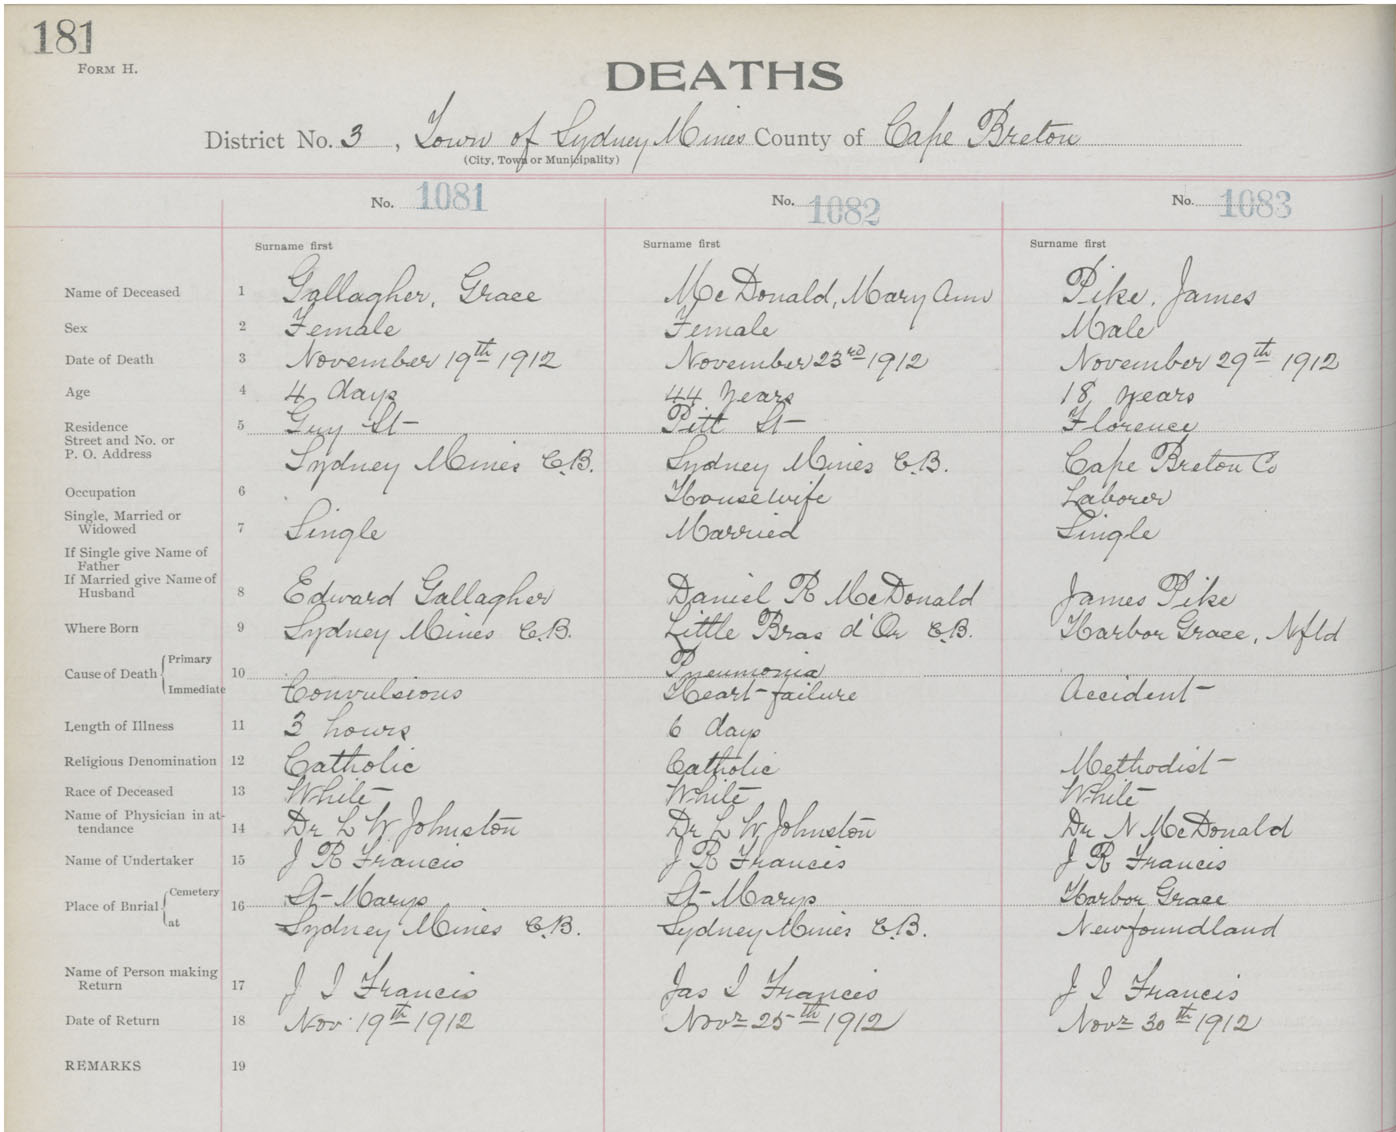 181
FORM H.
DEATHS
District No. 3, Town of Sydney Mines County of Cape Breton
(City, Town or Municipality)
No. 1081 No. 1082 No. 1083
Surname first Surname first Surname first
Name of Deceased 1 Gallagher, Grace McDonald, Mary Ann Pike, James
Sex 2 Female Female Male
Date of Death 3 November 19th 1912 November 23rd 1912 November 29th 1912
Age 4 4 days 44 years 18 years
Residence 5 Guy St Pitt St Florence
Street and No. or
P. O. Address Sydney Mines C.B. Sydney Mines C.B. Cape Breton Co
Occupation 6 Housewife Laborer
Single, Married or
Widowed 7 Single Married Single
If Single give Name of
Father
If Married give Name of
Husband 8 Edward Gallagher Daniel R McDonald James Pike
Where Born 9 Sydney Mines C.B. Little Bras d'Or C.B. Harbor Grace, Nfld
Primary Pneumonia
Cause of Death 10
Immediate Convulsions Heart failure Accident
Length of Illness 11 3 hours 6 days
Religious Denomination 12 Catholic Catholic Methodist
Race of Deceased 13 White White White
Name of Physician in at-
tendance 14 Dr L W Johnston Dr L W Johnston Dr N McDonald
Name of Undertaker 15 J R Francis J R Francis J R Francis
Cemetery St Marys St Marys Harbor Grace
Place of Burial 16
at Sydney Mines C.B. Sydney Mines C.B. Newfoundland
Name of Person making
Return 17 J I Francis Jas I Francis J I Francis
Date of Return 18 Nov 19th 1912 Novr 25th 1912 Novr 30th 1912
REMARKS 19